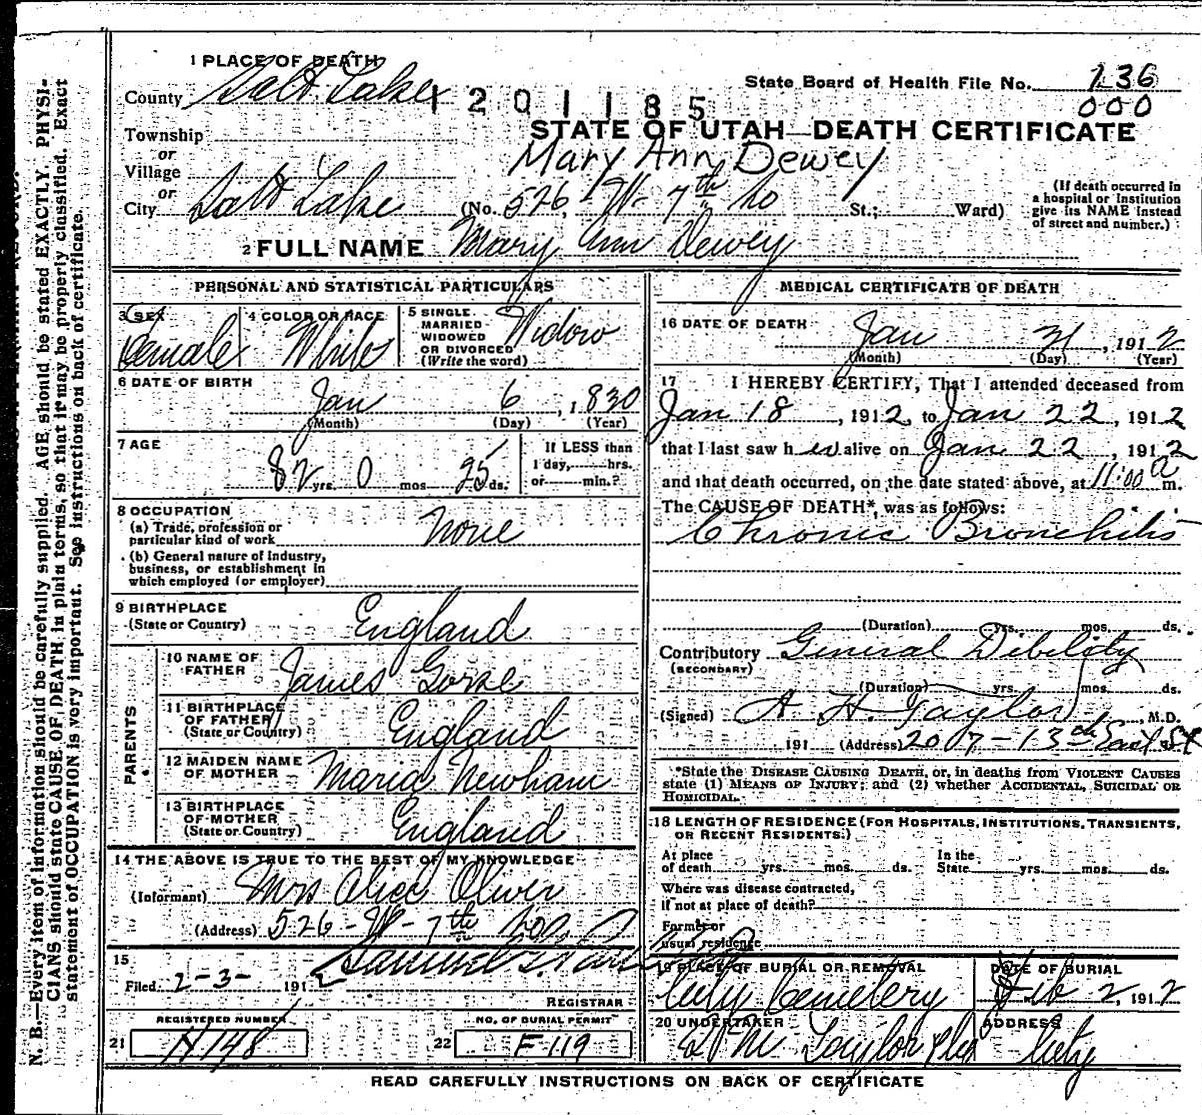 1 PLACE OF DEATH
State Board of Health File No. 136
County Salt Lake 1201185 000
STATE OF UTAH—DEATH CERTIFICATE
Township
or
Village Mary Ann Dewey
or
City Salt Lake (No. 526, W- 7th So St.; Ward)
(If death occurred in a hospital or institution give its NAME instead of street and number.)
2 FULL NAME Mary Ann Dewey
PERSONAL AND STATISTICAL PARTICULARS
3 SEX Female
4 COLOR OR RACE White
5 SINGLE MARRIED WIDOWED OR DIVORCED (Write the word) Widow
6 DATE OF BIRTH
Jan 6, 1830
(Month) (Day) (Year)
7 AGE
82 yrs. 0 mos 25 ds.
If LESS than
1 day, hrs.
or min.?
8 OCCUPATION
(a) Trade, profession or
particular kind of work None
(b) General nature of industry,
business, or establishment in
which employed (or employer)
9 BIRTHPLACE
(State or Country) England
PARENTS
10 NAME OF
FATHER James
11 BIRTHPLACE
OF FATHER
(State or Country) England
12 MAIDEN NAME
OF MOTHER Maria Newham
13 BIRTHPLACE
OF MOTHER
(State or Country) England
14 THE ABOVE IS TRUE TO THE BEST OF MY KNOWLEDGE
(Informant) Mrs Alice Oliver
(Address) 526-W-7th
15
Filed 2-3- 1912 Samuel G.
REGISTRAR
REGISTERED NUMBER
21 H148
NO. OF BURIAL PERMIT
22 F-119
MEDICAL CERTIFICATE OF DEATH
16 DATE OF DEATH
Jan 31, 1912
(Month) (Day) (Year)
17 I HEREBY CERTIFY, That I attended deceased from
Jan 18, 1912, to Jan 22, 1912
that I last saw her alive on Jan 22, 1912
and that death occurred, on the date stated above, at 11:00 a m.
The CAUSE OF DEATH*, was as follows:
Chronic Bronchitis
(Duration) yrs. mos. ds.
Contributory General Debility
(SECONDARY)
(Duration) yrs. mos. ds.
(Signed) A H. Taylor, M.D.
191 (Address) 2007-13th East St
*State the DISEASE CAUSING DEATH, or, in deaths from VIOLENT CAUSES
state (1) MEANS OF INJURY; and (2) whether ACCIDENTAL, SUICIDAL OR
HOMICIDAL.
18 LENGTH OF RESIDENCE (FOR HOSPITALS, INSTITUTIONS, TRANSIENTS,
OR RECENT RESIDENTS.)
At place
of death yrs. mos. ds.
In the
State yrs. mos. ds.
Where was disease contracted,
if not at place of death?
Former or
usual residence
19 PLACE OF BURIAL OR REMOVAL
City Cemetery
DATE OF BURIAL
Feb 2, 1912
20 UNDERTAKER
Taylor
ADDRESS
City
READ CAREFULLY INSTRUCTIONS ON BACK OF CERTIFICATE
N. B.—Every item of information should be carefully supplied. AGE should be stated EXACTLY. PHYSI-
CIANS should state CAUSE OF DEATH in plain terms, so that it may be properly classified. Exact
statement of OCCUPATION is very important. See instructions on back of certificate.